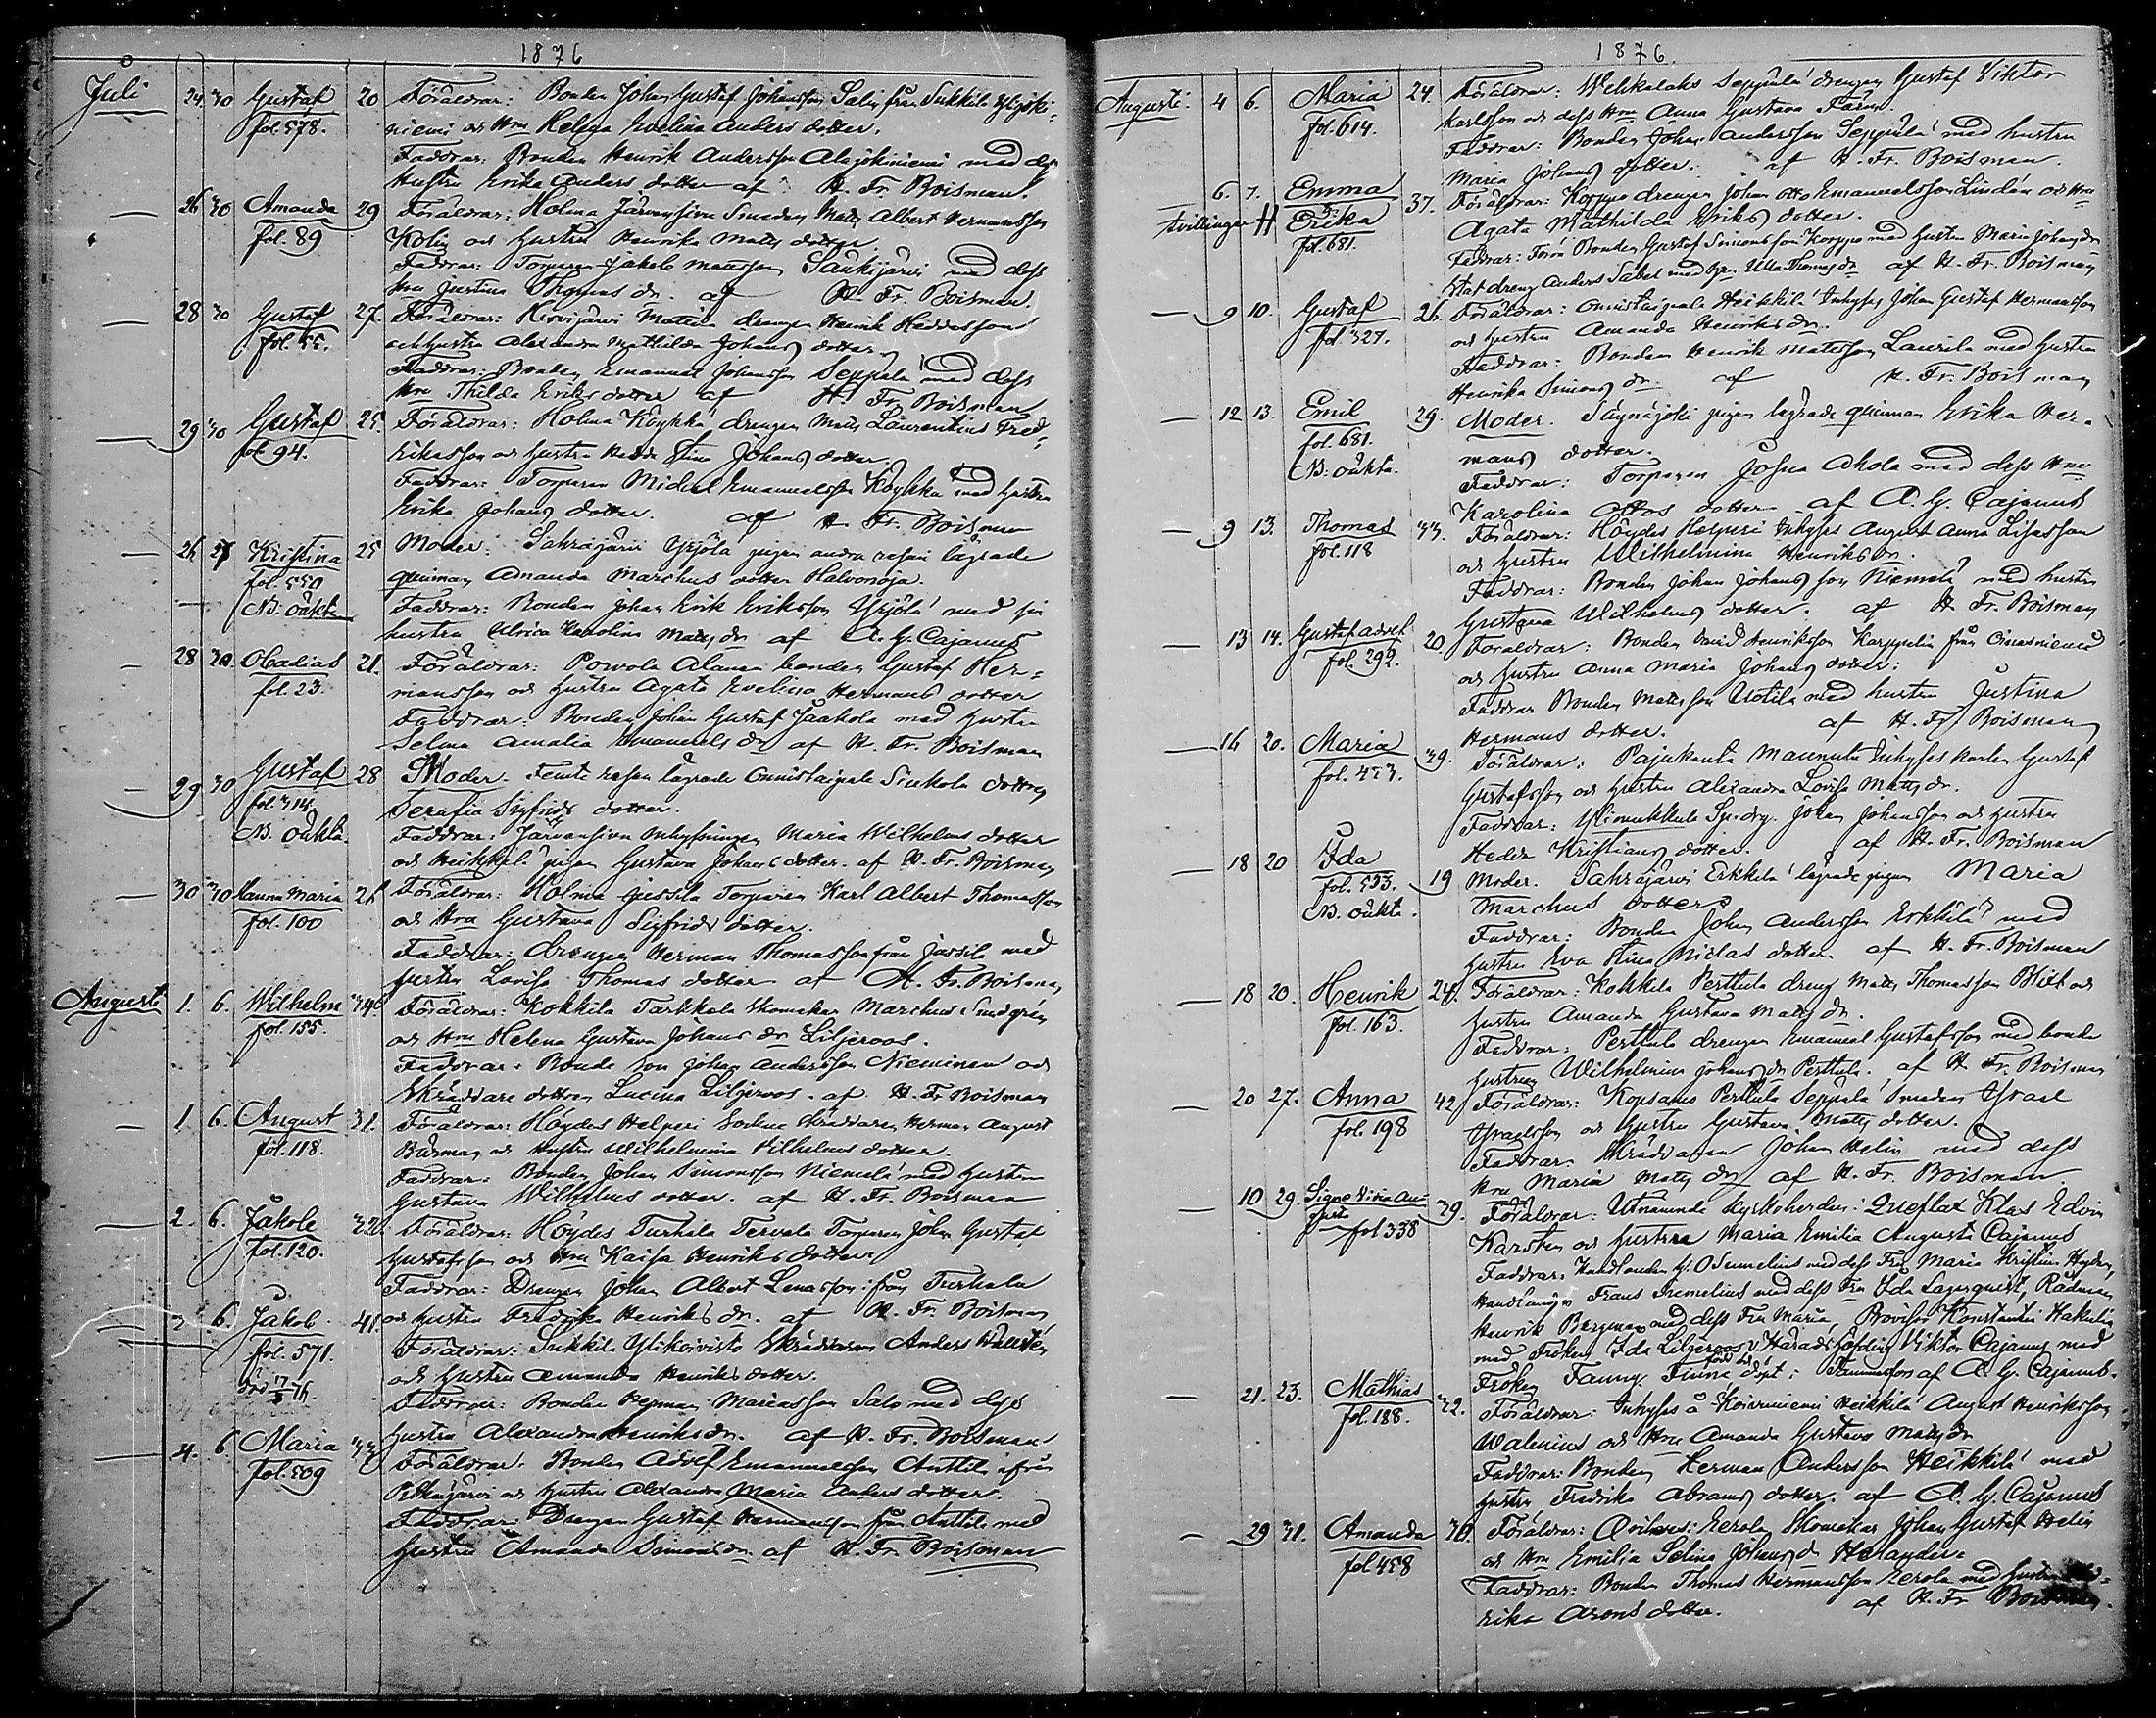 1876
Juli 24. 30 Gustaf 20 Föräldrar: Bonden Johan Gustaf Johansson Salin från Sukkila Ylijoki-
fol. 578. niemi och Hru Helena Evelina Anders dotter.
Faddrar: Bonden Henrik Andersson Alajokiniemi med dess
Hustru Erika Anders dotter af H. Fr. Boisman.
26 30 Amanda 29 Föräldrar: Holma Järvensivu Smeden Matts Albert Hermansson
fol. 89 Kolin och hustru Henrika Matts dotter.
Faddrar: Torparen Jakob Mattsson Säukijärvi med dess
Hru Justina Thomas dr. af H. Fr. Boisman.
28 30 Gustaf 27. Föräldrar: Kirvijärvi Mattila drengen Henrik Heddasson
fol. 55. och hustru Alexandra Mathilda Johans dotter.
Faddrar: Bonden Emanuel Johansson Seppälä med dess
Hru Thilda Eriks dotter af H. Fr. Boisman
29 30 Gustaf 25. Föräldrar: Holma Köykkä drengen Matts Laurentius Fred-
fol. 94. rikasson och hustru Hedda Stina Johans dotter.
Faddrar: Torparen Mickel Emanuelsson Köykkä med hustru
Erika Johans dotter. af H. Fr. Boisman
26 27 Kristina 25 Moder: Sahrajärvi Yrjölä pigan andra resan lägrade
fol. 550 quinnan Amanda Marckus dotter Halvorsoja.
N.B. oäkta Faddrar: Bonden Johan Erik Eriksson Yrjölä med sin
hustru Ulrica Karolina Matts dr af A. G. Cajanus
28 30. Obadias 21. Föräldrar: Porvola Alanen bonden Gustaf Her-
fol. 23. mansson och hustru Agata Evelina Hermans dotter
Faddrar: Bonden Johan Gustaf Jaakola med hustru
Selma Amalia Emanuels dr af H. Fr. Boisman
29 30 Gustaf 28 Moder. Femte resan lägrade Onnistaipale Sinkola dottren
fol. 314. Serafia Sigfrids dotter.
N.B. oäkta. Faddrar: Järvensivu Inhysningen Maria Wilhelms dotter
och Heikkilä pigan Gustava Johans dotter. af H. Fr. Boisman
30 30 Hanna Maria 26 Föräldrar: Holma Jussila Torparen Karl Albert Thomasson
fol. 100 och Hru Gustava Sigfrids dotter.
Faddrar: drengen Herman Thomasson från Jussila med
hustru Lovisa Thomas dotter af H. Fr. Boisman
Augusti 1. 6. Wilhelm 34. Föräldrar: Kokkila Tarkkala Skomakar Marckus Sundgrén
fol. 155. och Hru Helena Gustava Johans dr Liljeroos.
Faddrar: Bonde son Johan Andersson Nieminen och
Skräddare dottren Lucina Liljeroos. af H. Fr. Boisman
1 6. August 31. Föräldrar: Höydes Helperi Sockne Skräddaren Herman August
fol. 118. Burman och hustru Wilhelmina Vilhelms dotter.
Faddrar: Bonden Johan Simonsson Niemelä med hustru
Gustava Wilhelms dotter. af H. Fr. Boisman
2. 6. Jakob 32. Föräldrar: Höydes Turkala Tervala Torparen Johan Gustaf
fol. 120. Gustafsson och Hru Kaisa Henriks dotter
Faddrar: Drengen Johan Albert Lenasson från Turkala
3 6. Jakob 41. och hustru Fredrika Henriks dr. af H. Fr. Boisman
fol. 571. Föräldrar: Sukkila Ylikoivisto Skräddaren Anders Hallstén
och hustru Amanda Henriks dotter.
Faddrar: Bonden Herman Mariasson Salo med dess
hustru Alexandra Henriks dr. af H. Fr. Boisman
4. 6 Maria 33 Föräldrar: Bonden Adolf Emanuelsson Anttila ifrån
fol. 509 Pitkäjärvi och hustru Alexandra Maria Anders dotter.
Faddrar: Drengen Gustaf Hermansson från Anttila med
hustru Amanda Simons dr. af H. Fr. Boisman
1876.
Augusti. 4 6. Maria 24. Föräldrar: Seppälä drengen Gustaf Viktor
fol. 614. Karlsson och dess Hru Anna Gustava Färm.
Faddrar: Bonden Johan Andersson Seppälä med hustru
Maria Johans dotter. af H. Fr. Boisman.
6. 7. Emma 37. Föräldrar: Korppo drengen Johan Otto Emanuelsson Lindén och Hru
tvillingar Erika Agata Mathilda Eriks dotter.
fol. 681. Faddrar: Bonden Gustaf Simonsson Korppo med hustru Maria Johans dr
Statdreng Anders Sabel med Hr. Ulla Thomas dr af H. Fr. Boisman
9 10. Gustaf 26. Föräldrar: Onnistaipale Heikkilä Inhyses Johan Gustaf Hermansson
fol. 327. och hustru Amanda Henriks dr.
Faddrar: Bonden Henrik Matsson Laurila med hustru
Henrika Simons dr af H. Fr. Boisman
12 13. Emil 29. Moder. Säynäjoki pigan lägrade quinnan Erika Her-
fol. 681. mans dotter.
N.B. oäkta. Faddrar: Torparen Josua Ahola med dess Hru
Karolina Ottos dotter af A. G. Cajanus
9 13. Thomas 33. Föräldrar: Höydes Helperi Inhyses August Anna Lisasson
fol. 118 och hustru Wilhelmina Henriks dr.
Faddrar: Bonden Johan Johansson Niemelä med hustru
Gustava Wilhelms dotter. af H. Fr. Boisman
13 14. Gustaf Adolf 20 Föräldrar: Bonden David Henriksson Karppelin från
fol. 292. och hustru Anna Maria Johans dotter:
Faddrar Bonden Mattsson Uotila med hustru Justina
Hermans dotter. af H. Fr. Boisman
16 20. Maria 39. Föräldrar: Pajukanta Mannula Inhyses karlen Gustaf
fol. 473. Gustafsson och hustru Alexandra Lovisa Matts dr.
Faddrar: Johan Johansson och hustru
Hedda Kristians dotter. af H. Fr. Boisman
18 20 Ida 19 Moder. Sahrajärvi Erkkilä lägrade pigan Maria
fol. 553. Marckus dotter
N.B. oäkta. Faddrar: Bonden Johan Andersson Erkkilä med
hustru Eva Stina Niclas dotter. af H. Fr. Boisman
18 20. Henrik 24. Föräldrar: Kokkila Perttula dreng Matts Thomasson Blixt och
fol. 163. hustru Amanda Gustava Matts dr.
Faddrar: Perttula drengen Emanuel Gustafsson med bonde
hustrun Wilhelmina Johans dr Perttula. af H. Fr. Boisman
20 27. Anna 42 Föräldrar: Kopsamo Perttula Seppälä Smeden Israel
fol. 198 Israelsson och hustru Gustava Matts dotter.
Faddrar: Skräddaren Johan Helin med dess
Hru Maria Matts dr af H. Fr. Boisman
10 29. Signe Viva Au- 39. Föräldrar: Utnämnde Kyrkoherden i Queflax Klas Edvin
gusta fol 338 Karsten och hustru Maria Emilia Augusta Cajanus
Faddrar: Handlanden G. O Sumelius med dess Fru Maria Kristina Hydén,
Handlanden Frans Sumelius med dess Fru Ida Lagerquist, Rådman
Henrik Bergman med dess Fru Maria, Provisor Konstantin Hakulin
med Fröken Ida Liljeroos, v. Häradshöfding Viktor Cajanus med
Fröken Fanny Finne. döpt i Tammerfors af A. G. Cajanus.
21. 23. Mathias 32. Föräldrar: Inhyses å Koivuniemi Heikkilä August Henriksson
fol. 188. Walenius och Hru Amanda Gustava Matts dr
Faddrar: Bonden Herman Andersson Heikkilä med
hustru Fredrika Abrams dotter. af A. G. Cajanus
29 31. Amanda 30. Föräldrar: Eerola Skomakar Johan Gustaf Helin
fol 458 och Hru Emilia Selina Johans dr Helander.
Faddrar: Bonden Thomas Hermansson Eerola med hustru Fred-
rika Arons dotter. af H. Fr Boisman.